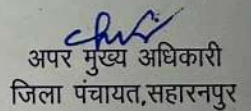 अपर मुख्य अधिकारी
जिला पंचायत,सहारनपुर